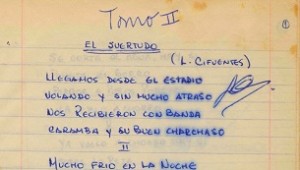 Tomo II
①
EL SUERTUDO
(L. CIFUENTES)
LLEGAMOS DESDE EL ESTADIO
VOLANDO Y SIN MUCHO ATRASO
NOS RECIBIERON CON BANDA
CARAMBA Y SU BUEN CHARCHASO
II
MUCHO FRIO EN LA NOCHE